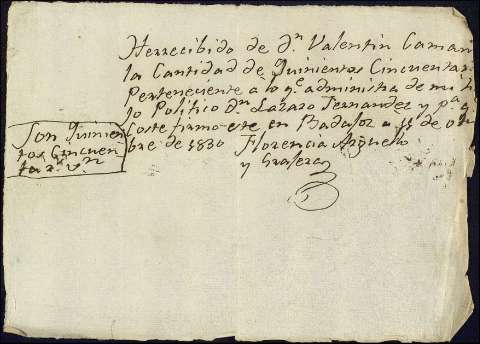 Herrecibido de Dn Valentin Caman
la Cantidad de Quinientos Cincuenta r
Perteneciente a lo qe administra de mi hi
jo Politico Dn Lazaro Fernandez y pa q
Coste firmo este en Badajoz a 11 de otu
bre de 1830 Florencia Arguello
y Grajera
Son Quinien
tos Cincuen
ta rs vn